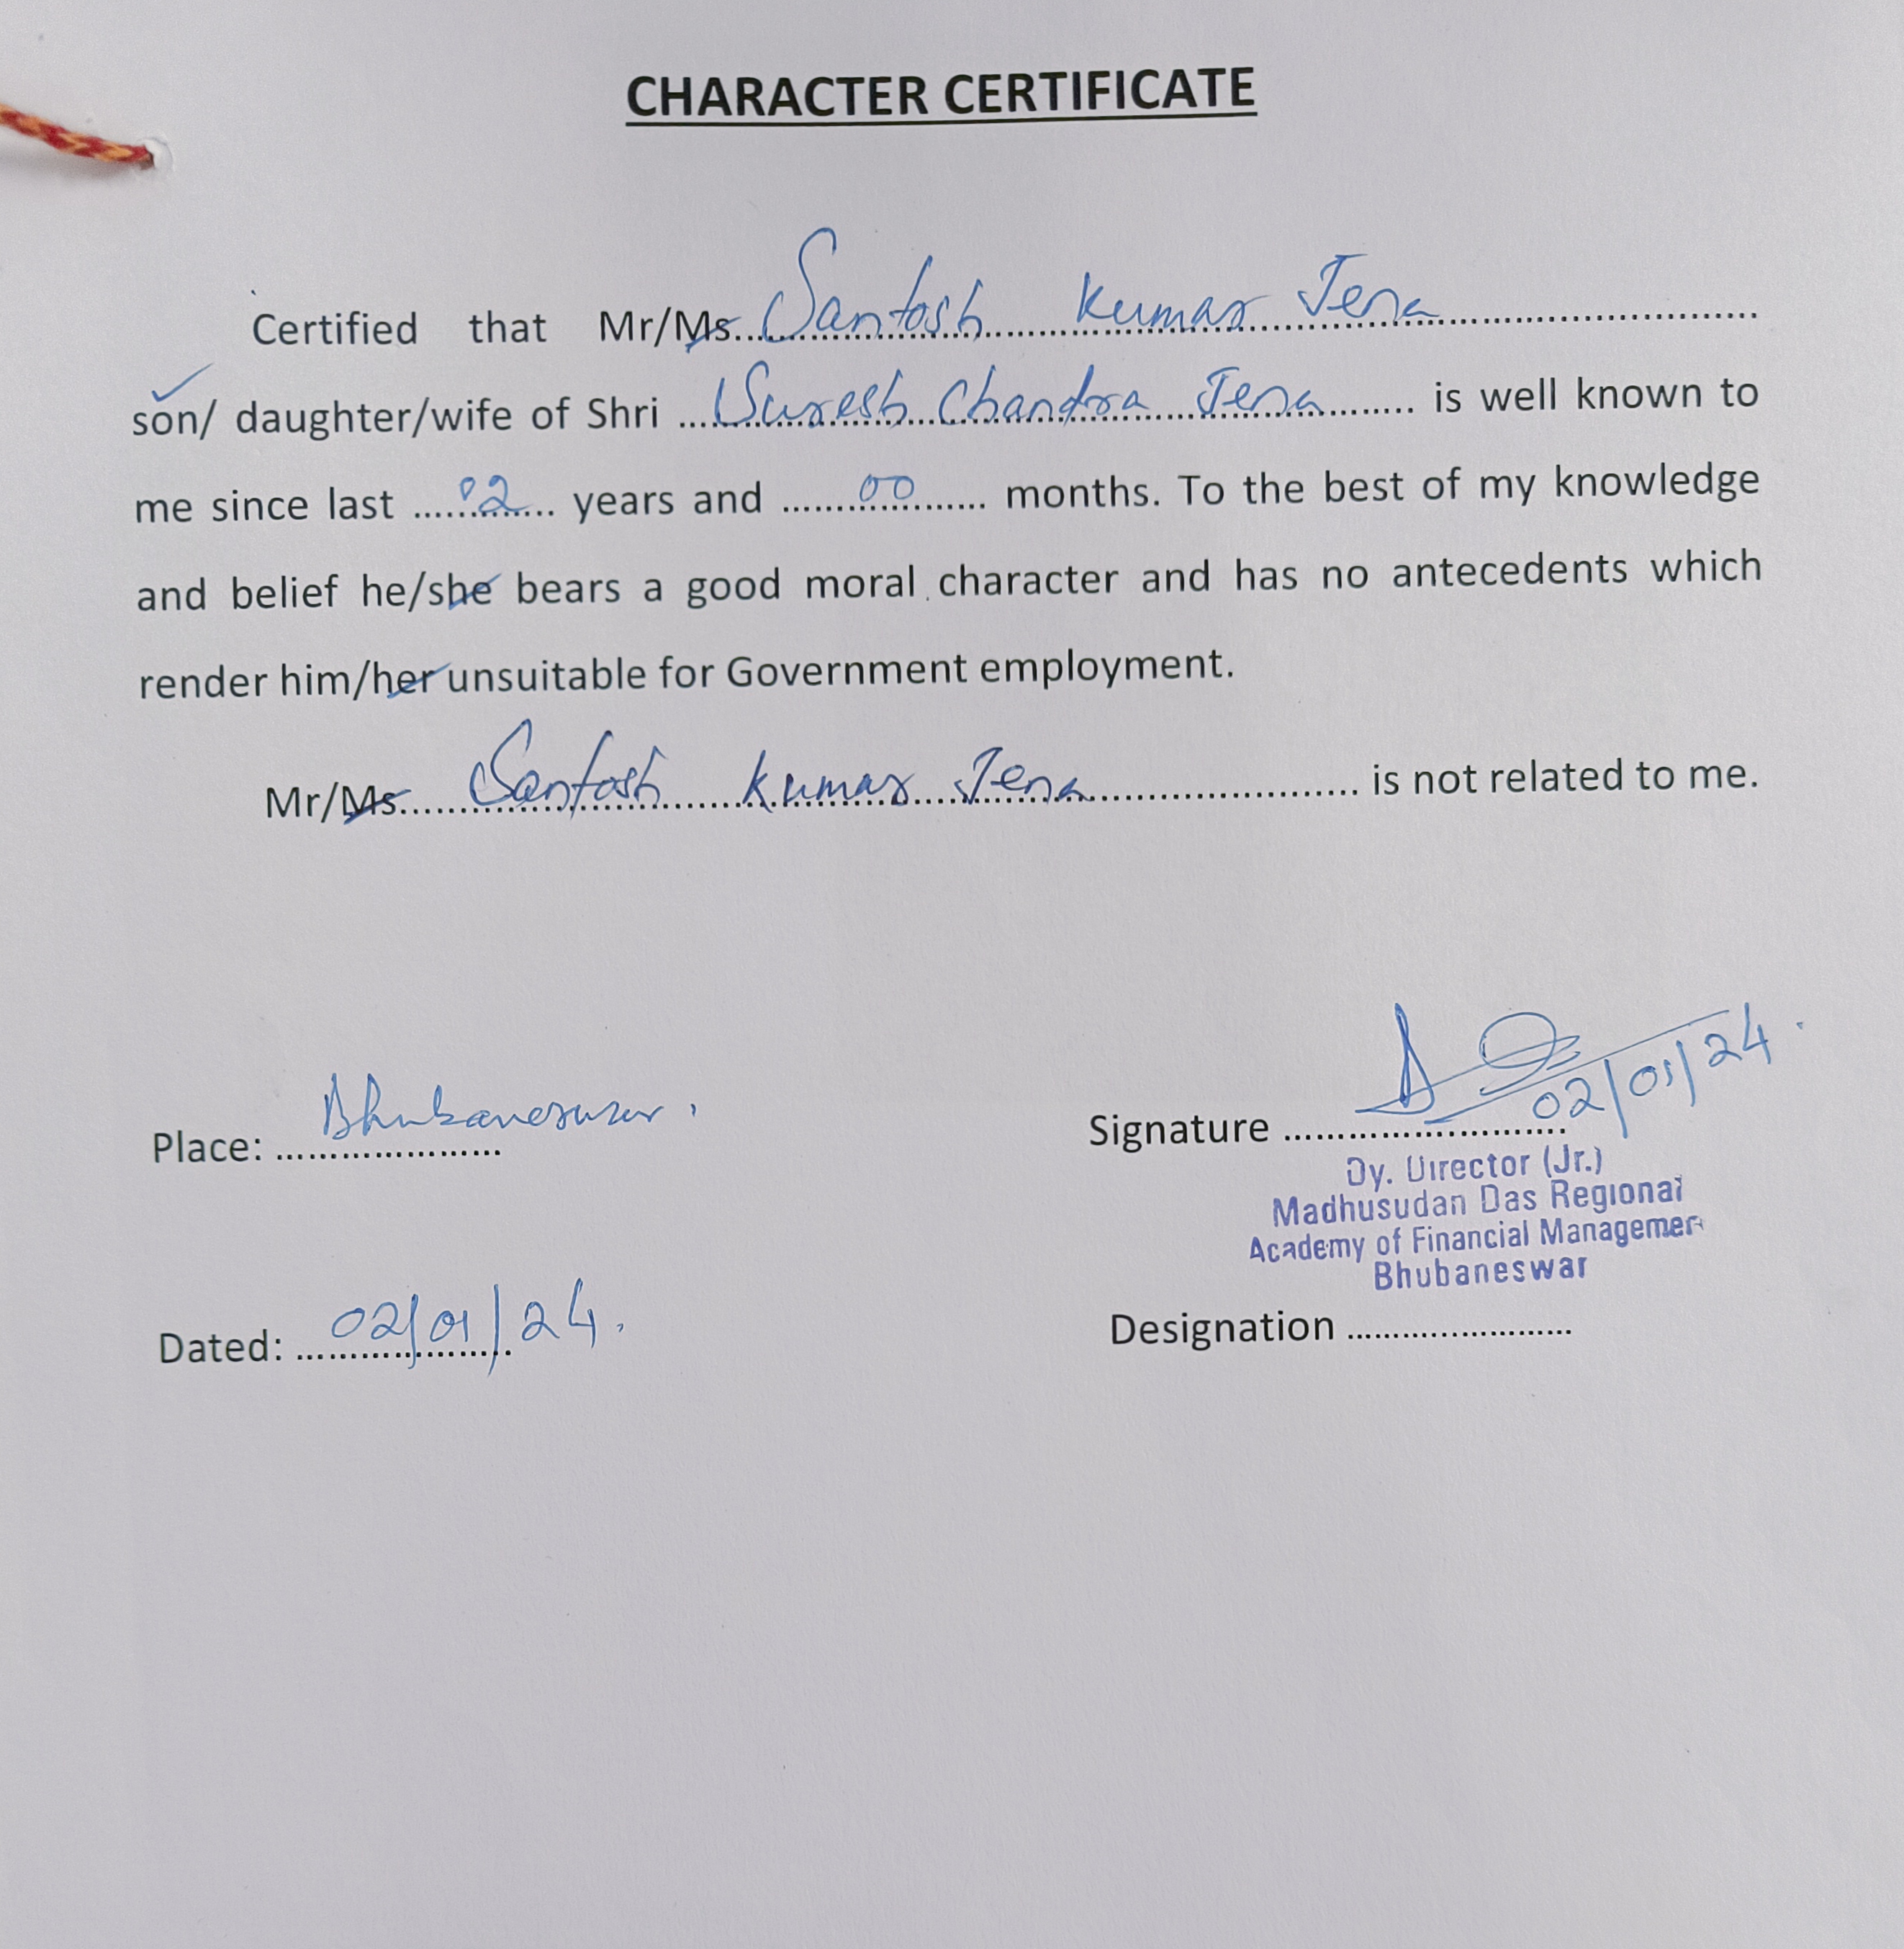 CHARACTER CERTIFICATE
Certified that Mr/Ms. Santosh Kumar Jena
son/ daughter/wife of Shri Suresh Chandra Jena is well known to
me since last 02 years and 00 months. To the best of my knowledge
and belief he/she bears a good moral character and has no antecedents which
render him/her unsuitable for Government employment.
Mr/Ms. Santosh Kumar Jena is not related to me.
Place: Bhubaneswar.
Signature 02/01/24.
Dy. Director (Jr.)
Madhusudan Das Regional
Academy of Financial Managemen
Bhubaneswar
Dated: 02/01/24.
Designation